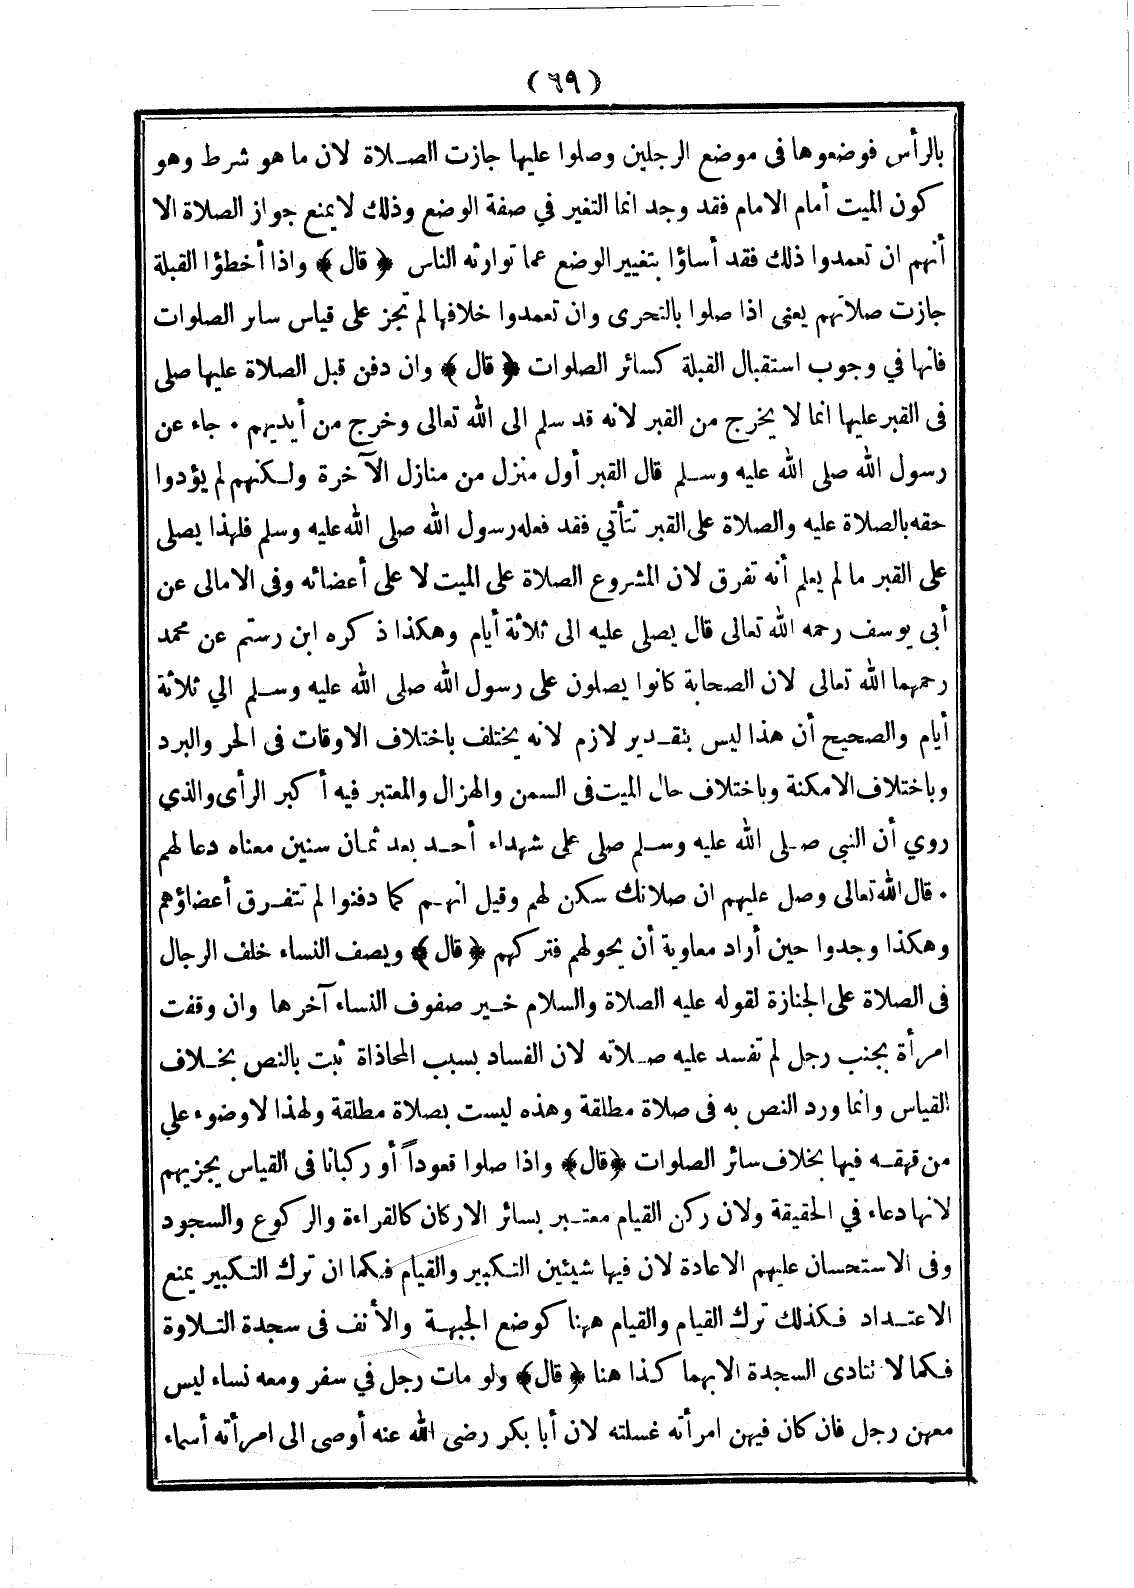 (٦٩)
بالرأس فوضعوها فى موضع الرجلين وصلوا عليها جازت الصـلاة لان ما هو شرط وهو
كون الميت أمام الامام فقد وجد انما التغير في صفة الوضع وذلك لايمنع جواز الصلاة الا
أنهم ان تعمدوا ذلك فقد أساؤا بتغيير الوضع عما توارثه الناس ﴿ قال ﴾ واذا أخطؤا القبلة
جازت صلاتهم يعنى اذا صلوا بالتحرى وان تعمدوا خلافها لم تجز على قياس سائر الصلوات
فانها في وجوب استقبال القبلة كسائر الصلوات ﴿ قال ﴾ وان دفن قبل الصلاة عليها صلى
فى القبر عليها انما لا يخرج من القبر لانه قد سلم الى الله تعالى وخرج من أيديهم ٠ جاء عن
رسول الله صلى الله عليه وسـلم قال القبر أول منزل من منازل الآخرة ولـكنهم لم يؤدوا
حقه بالصلاة عليه والصلاة على القبر تتأتي فقد فعله رسول الله صلى الله عليه وسلم فلهذا يصلى
على القبر ما لم يعلم أنه تفرق لان المشروع الصلاة على الميت لا على أعضائه وفى الامالى عن
أبى يوسف رحمه الله تعالى قال يصلى عليه الى ثلاثة أيام وهكذا ذكره ابن رستم عن محمد
رحمهما الله تعالى لان الصحابة كانوا يصلون على رسول الله صلى الله عليه وسـلم الي ثلاثة
أيام والصحيح أن هذا ليس بتقـدير لازم لانه يختلف باختلاف الاوقات فى الحر والبرد
وباختلاف الامكنة وباختلاف حال الميت فى السمن والهزال والمعتبر فيه أكبر الرأى والذي
روي أن النبى صـلى الله عليه وسـلم صلى على شهداء أحـد بعد ثمـان سنين معناه دعا لهم
٠ قال الله تعالى وصل عليهم ان صلاتك سكن لهم وقيل انهـم كما دفنوا لم تتفـرق أعضاؤهم
وهكذا وجدوا حين أراد معاوية أن يحولهم فتركهم ﴿ قال ﴾ ويصف النساء خلف الرجال
فى الصلاة على الجنازة لقوله عليه الصلاة والسلام خـير صفوف النساء آخرها وان وقفت
امرأة بجنب رجل لم تفسد عليه صـلاته لان الفساد بسبب المحاذاة ثبت بالنص بخـلاف
القياس وانما ورد النص به فى صلاة مطلقة وهذه ليست بصلاة مطلقة ولهذا لاوضوء علي
من قهقـه فيها بخلاف سائر الصلوات ﴿قال﴾ واذا صلوا قعوداً أو ركبانا فى القياس يجزيهم
لانها دعاء في الحقيقة ولان ركن القيام معتـبر بسائر الاركان كالقراءة والركوع والسجود
وفى الاستحسان عليهم الاعادة لان فيها شيئين التـكبير والقيام فـكما ان ترك التـكبير يمنع
الاعتـداد فـكذلك ترك القيام والقيام ههنا كوضع الجبهـة والأنف فى سجدة التـلاوة
فـكما لا تتادى السجدة الا بهما كـذا هنا ﴿ قال﴾ ولو مات رجل في سفر ومعه نساء ليس
معهن رجل فان كان فيهن امرأته غسلته لان أبا بكر رضى الله عنه أوصى الى امرأته أسماء